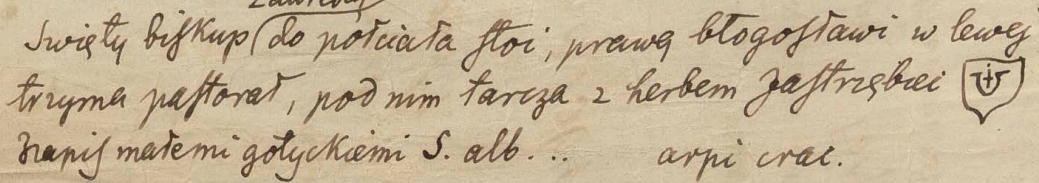 Święty biskup (do połciała stoi, prawą błogosławi w lewej
trzyma pastorał, pod nim tarcza z herbem Jastrzębiei
Napis małemi gotyckiemi S. alb... arpi crac.